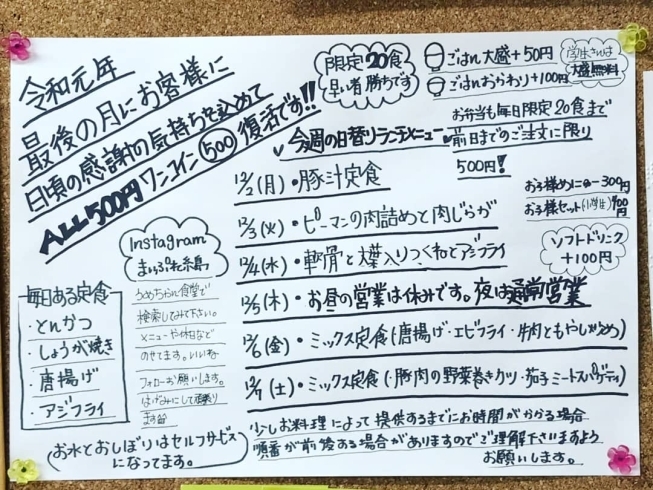 令和元年
最後の月にお客様に
日頃の感謝の気持ちを込めて
ALL500円ワンコイン500復活です!!
限定20食
早い者勝ちです
ごはん大盛+50円
ごはんおかわり+100円
学生さんは
大盛無料
お弁当も毎日限定20食まで
前日までのご注文に限り
500円!
今週の日替りランチメニュー
12/2(月)・豚汁定食
12/3(火)・ピーマンの肉詰めと肉じゃが
12/4(水)・軟骨と大葉入りつくねとアジフライ
12/5(木)・お昼の営業は休みです。夜は通常営業
12/6(金)・ミックス定食(唐揚げ・エビフライ・牛肉ともやし炒め)
12/7(土)・ミックス定食(・豚肉の野菜巻きカツ・茄子ミートスパゲティ)
お子様めにゅー300円
お子様セット(小学生)400円
ソフトドリンク
+100円
Instagram
まいぷれ糸島
うめちゃん食堂で
検索してみて下さい。
メニューや休日など
のせてます。いいね
フォローお願いします。
はげみにして頑張り
ます
毎日ある定食
・とんかつ
・しょうが焼き
・唐揚げ
・アジフライ
お水とおしぼりはセルフサービス
になってます。
少しお料理によって提供するまでにお時間がかかる場合
順番が前後する場合がありますのでご理解下さいますよう
お願いします。